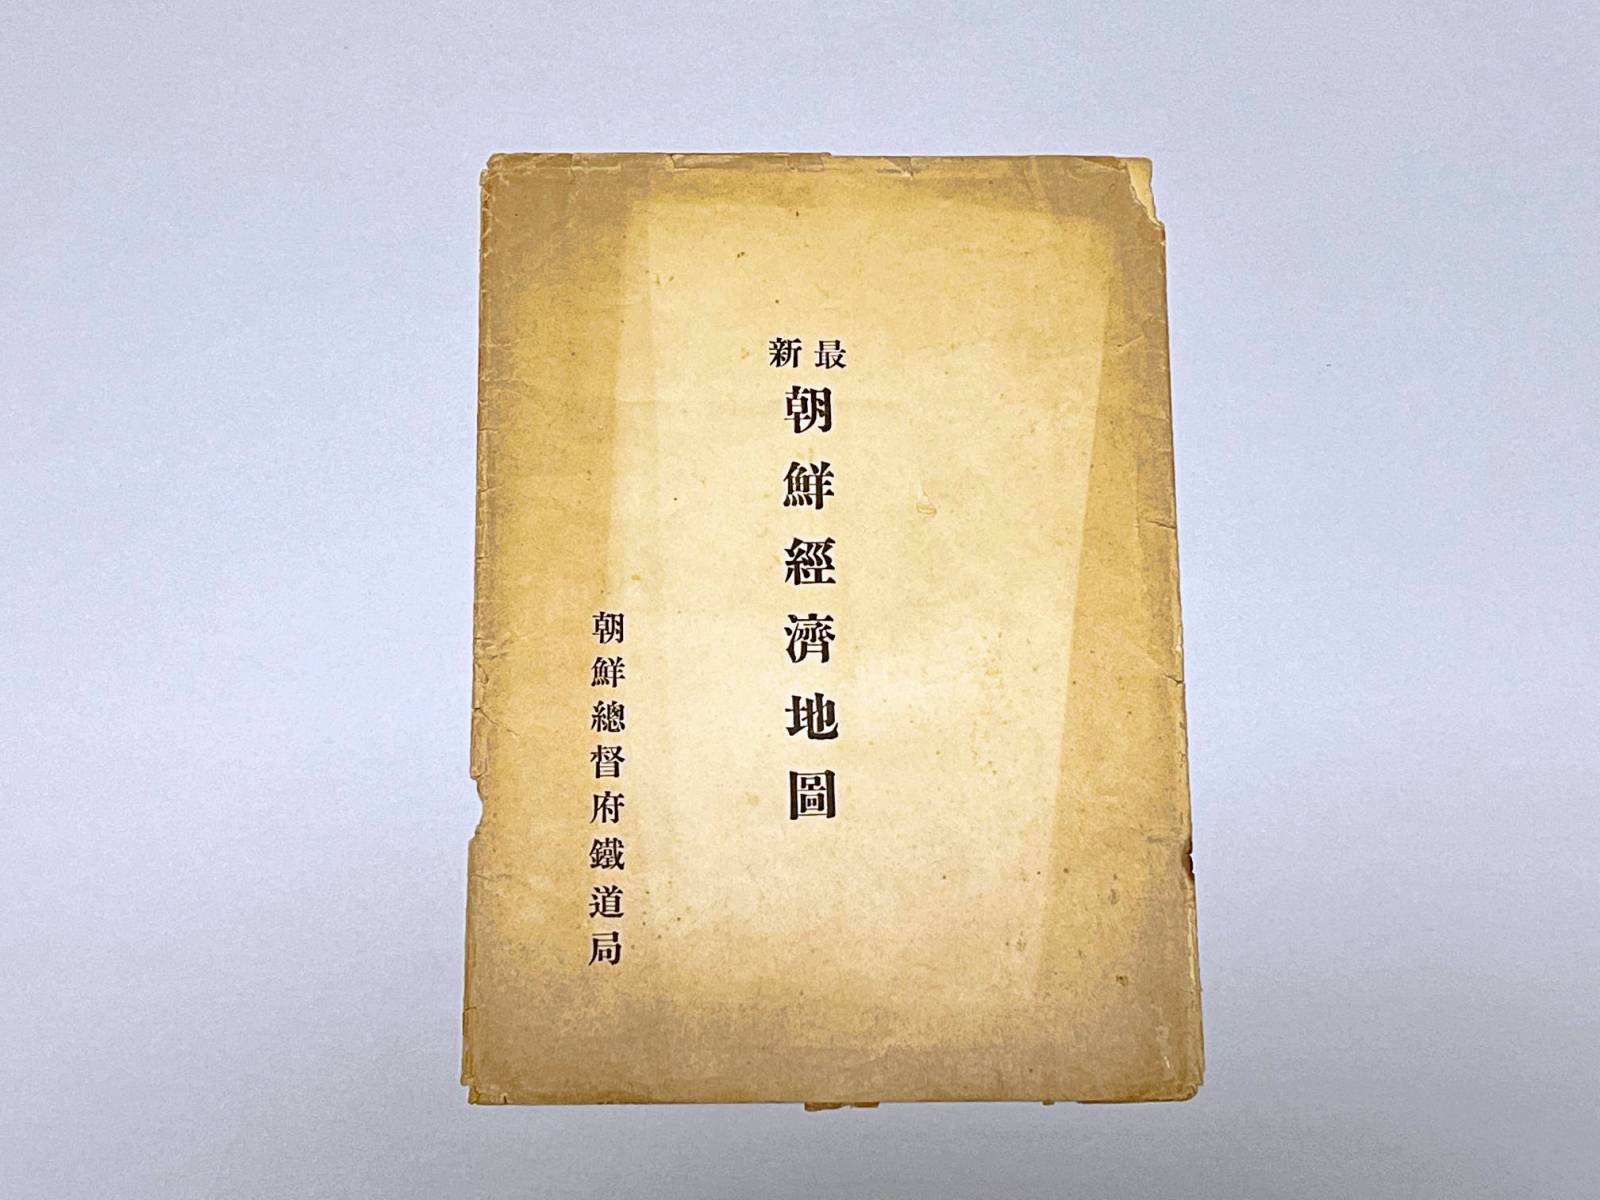 最新
朝鮮經濟地圖
朝鮮總督府鐵道局